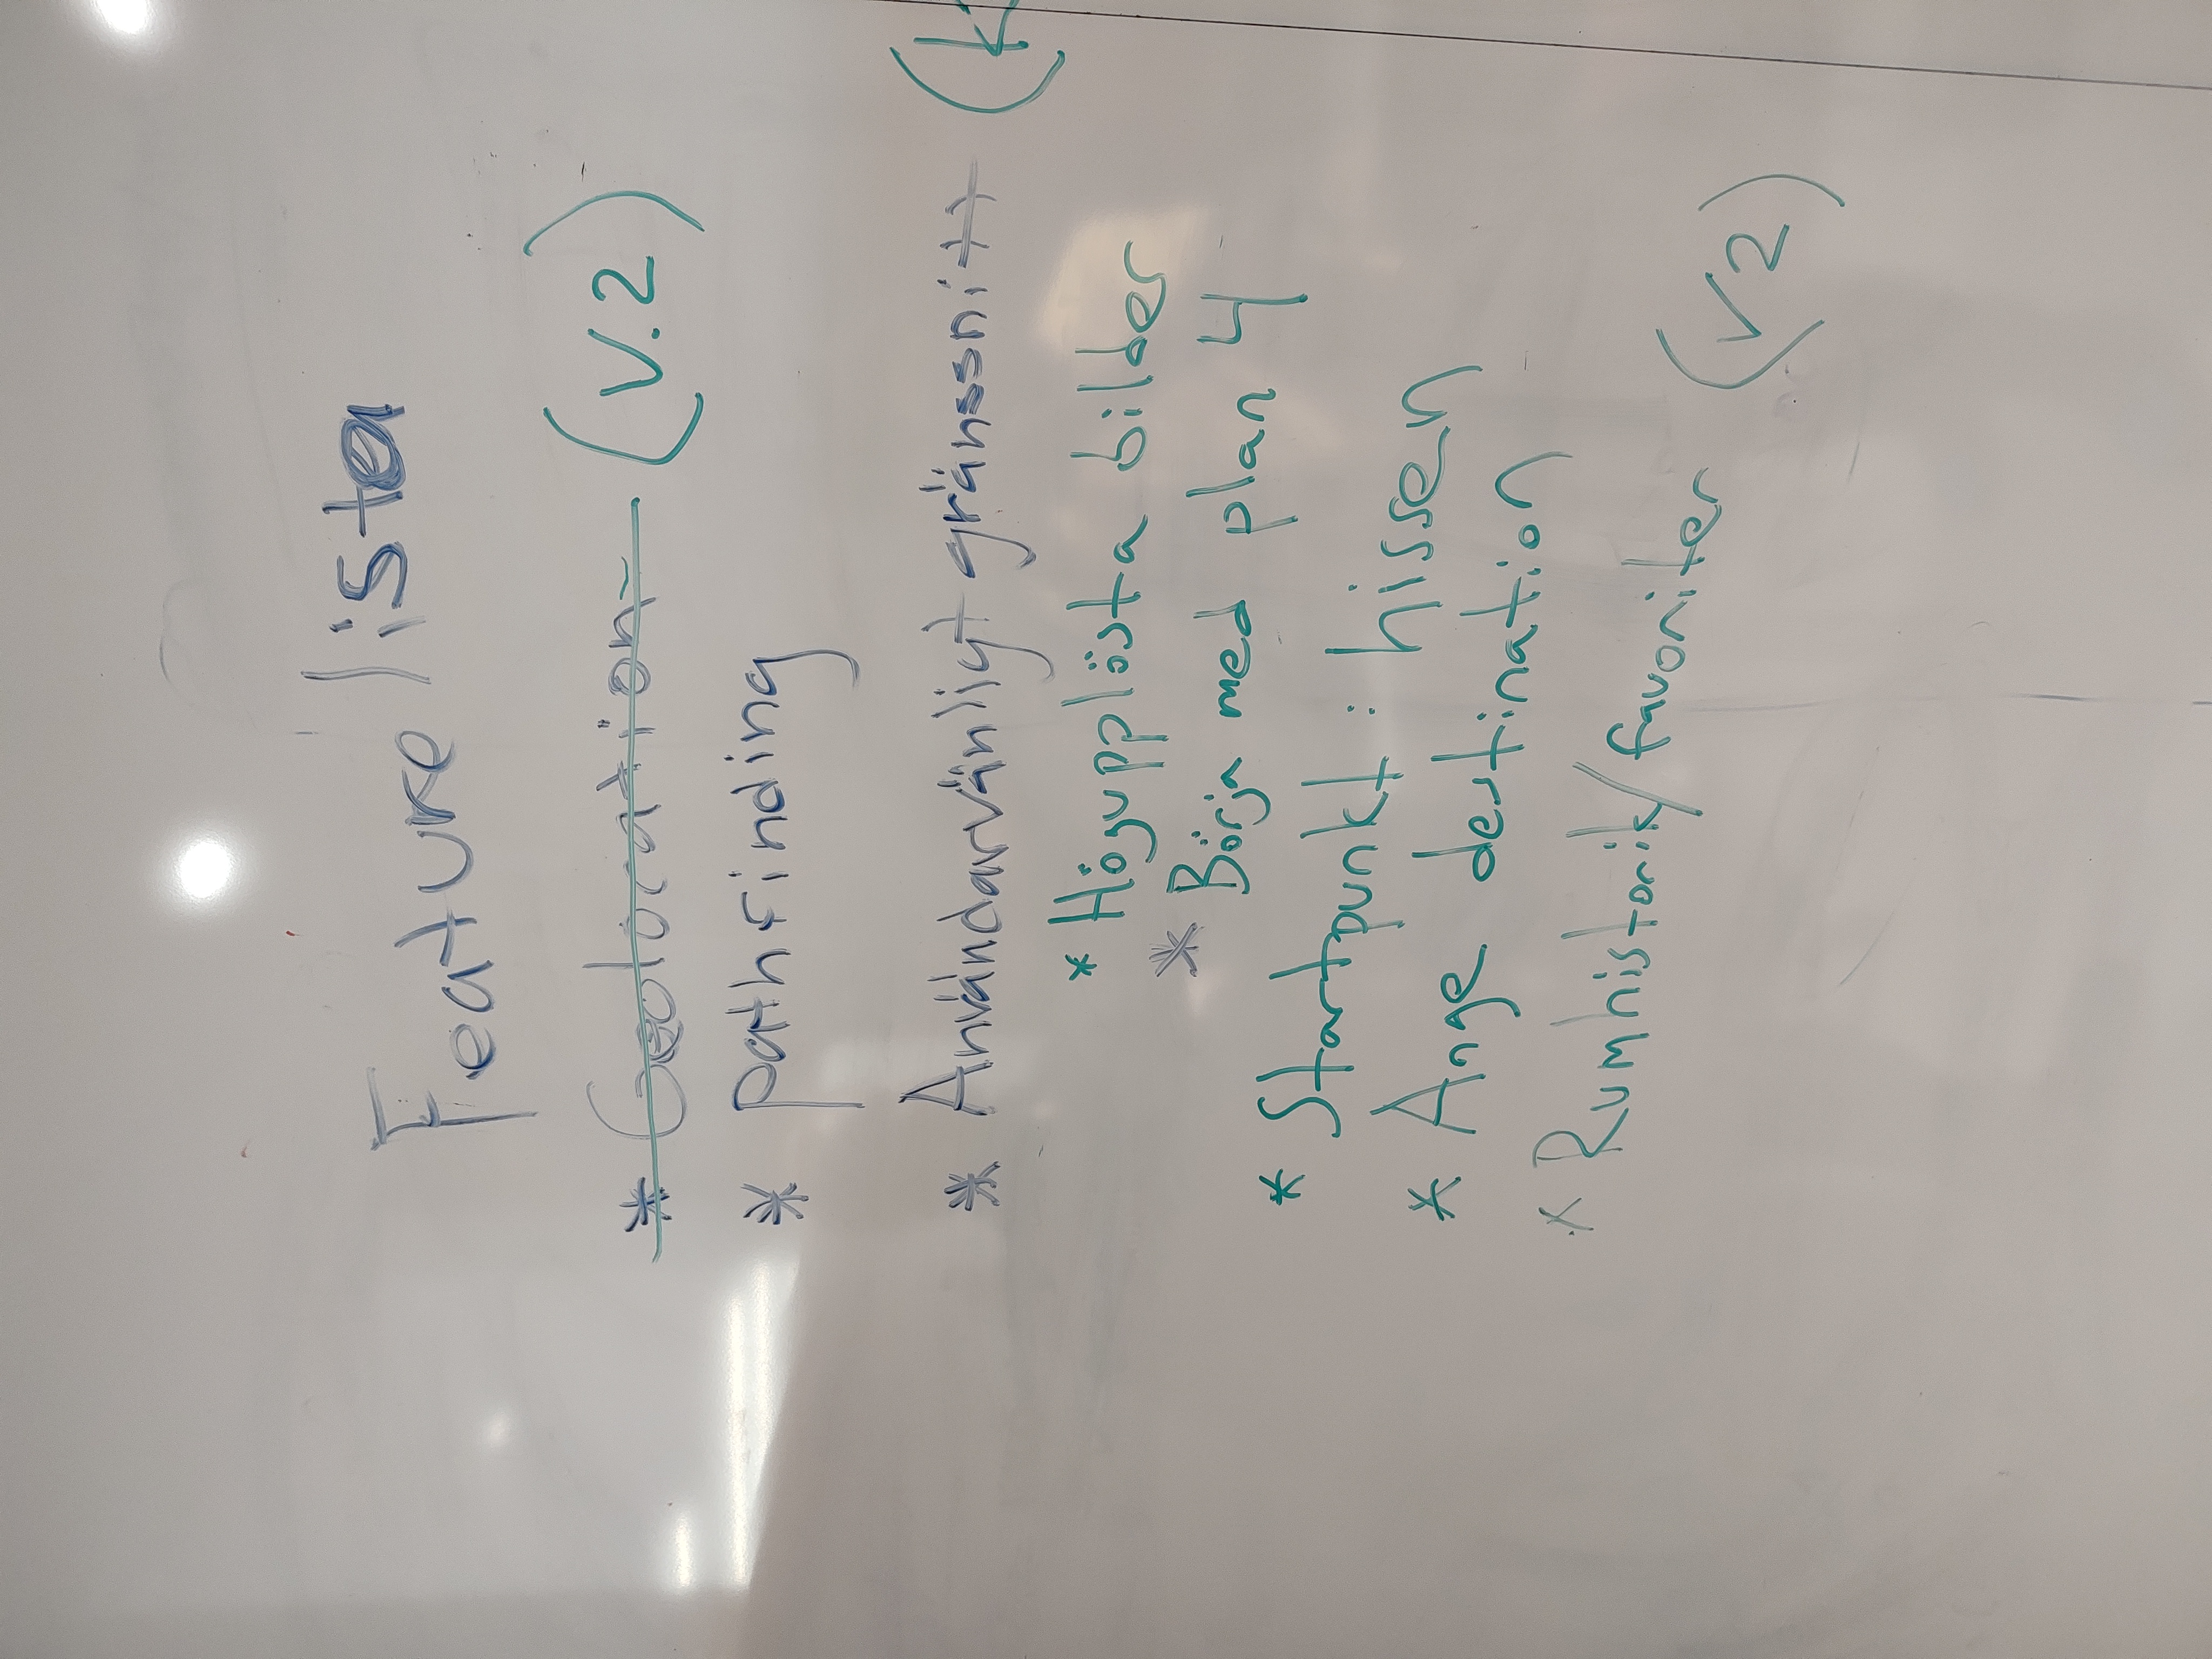 Feature lista
* Geolocation (V.2)
* pathfinding
* Användarvänligt gränssnitt (k
* Högupplösta bilder
* Börja med plan 4
* Startpunkt : hissen
* Ange destination
* Rumhistorik/favoriter (V2)